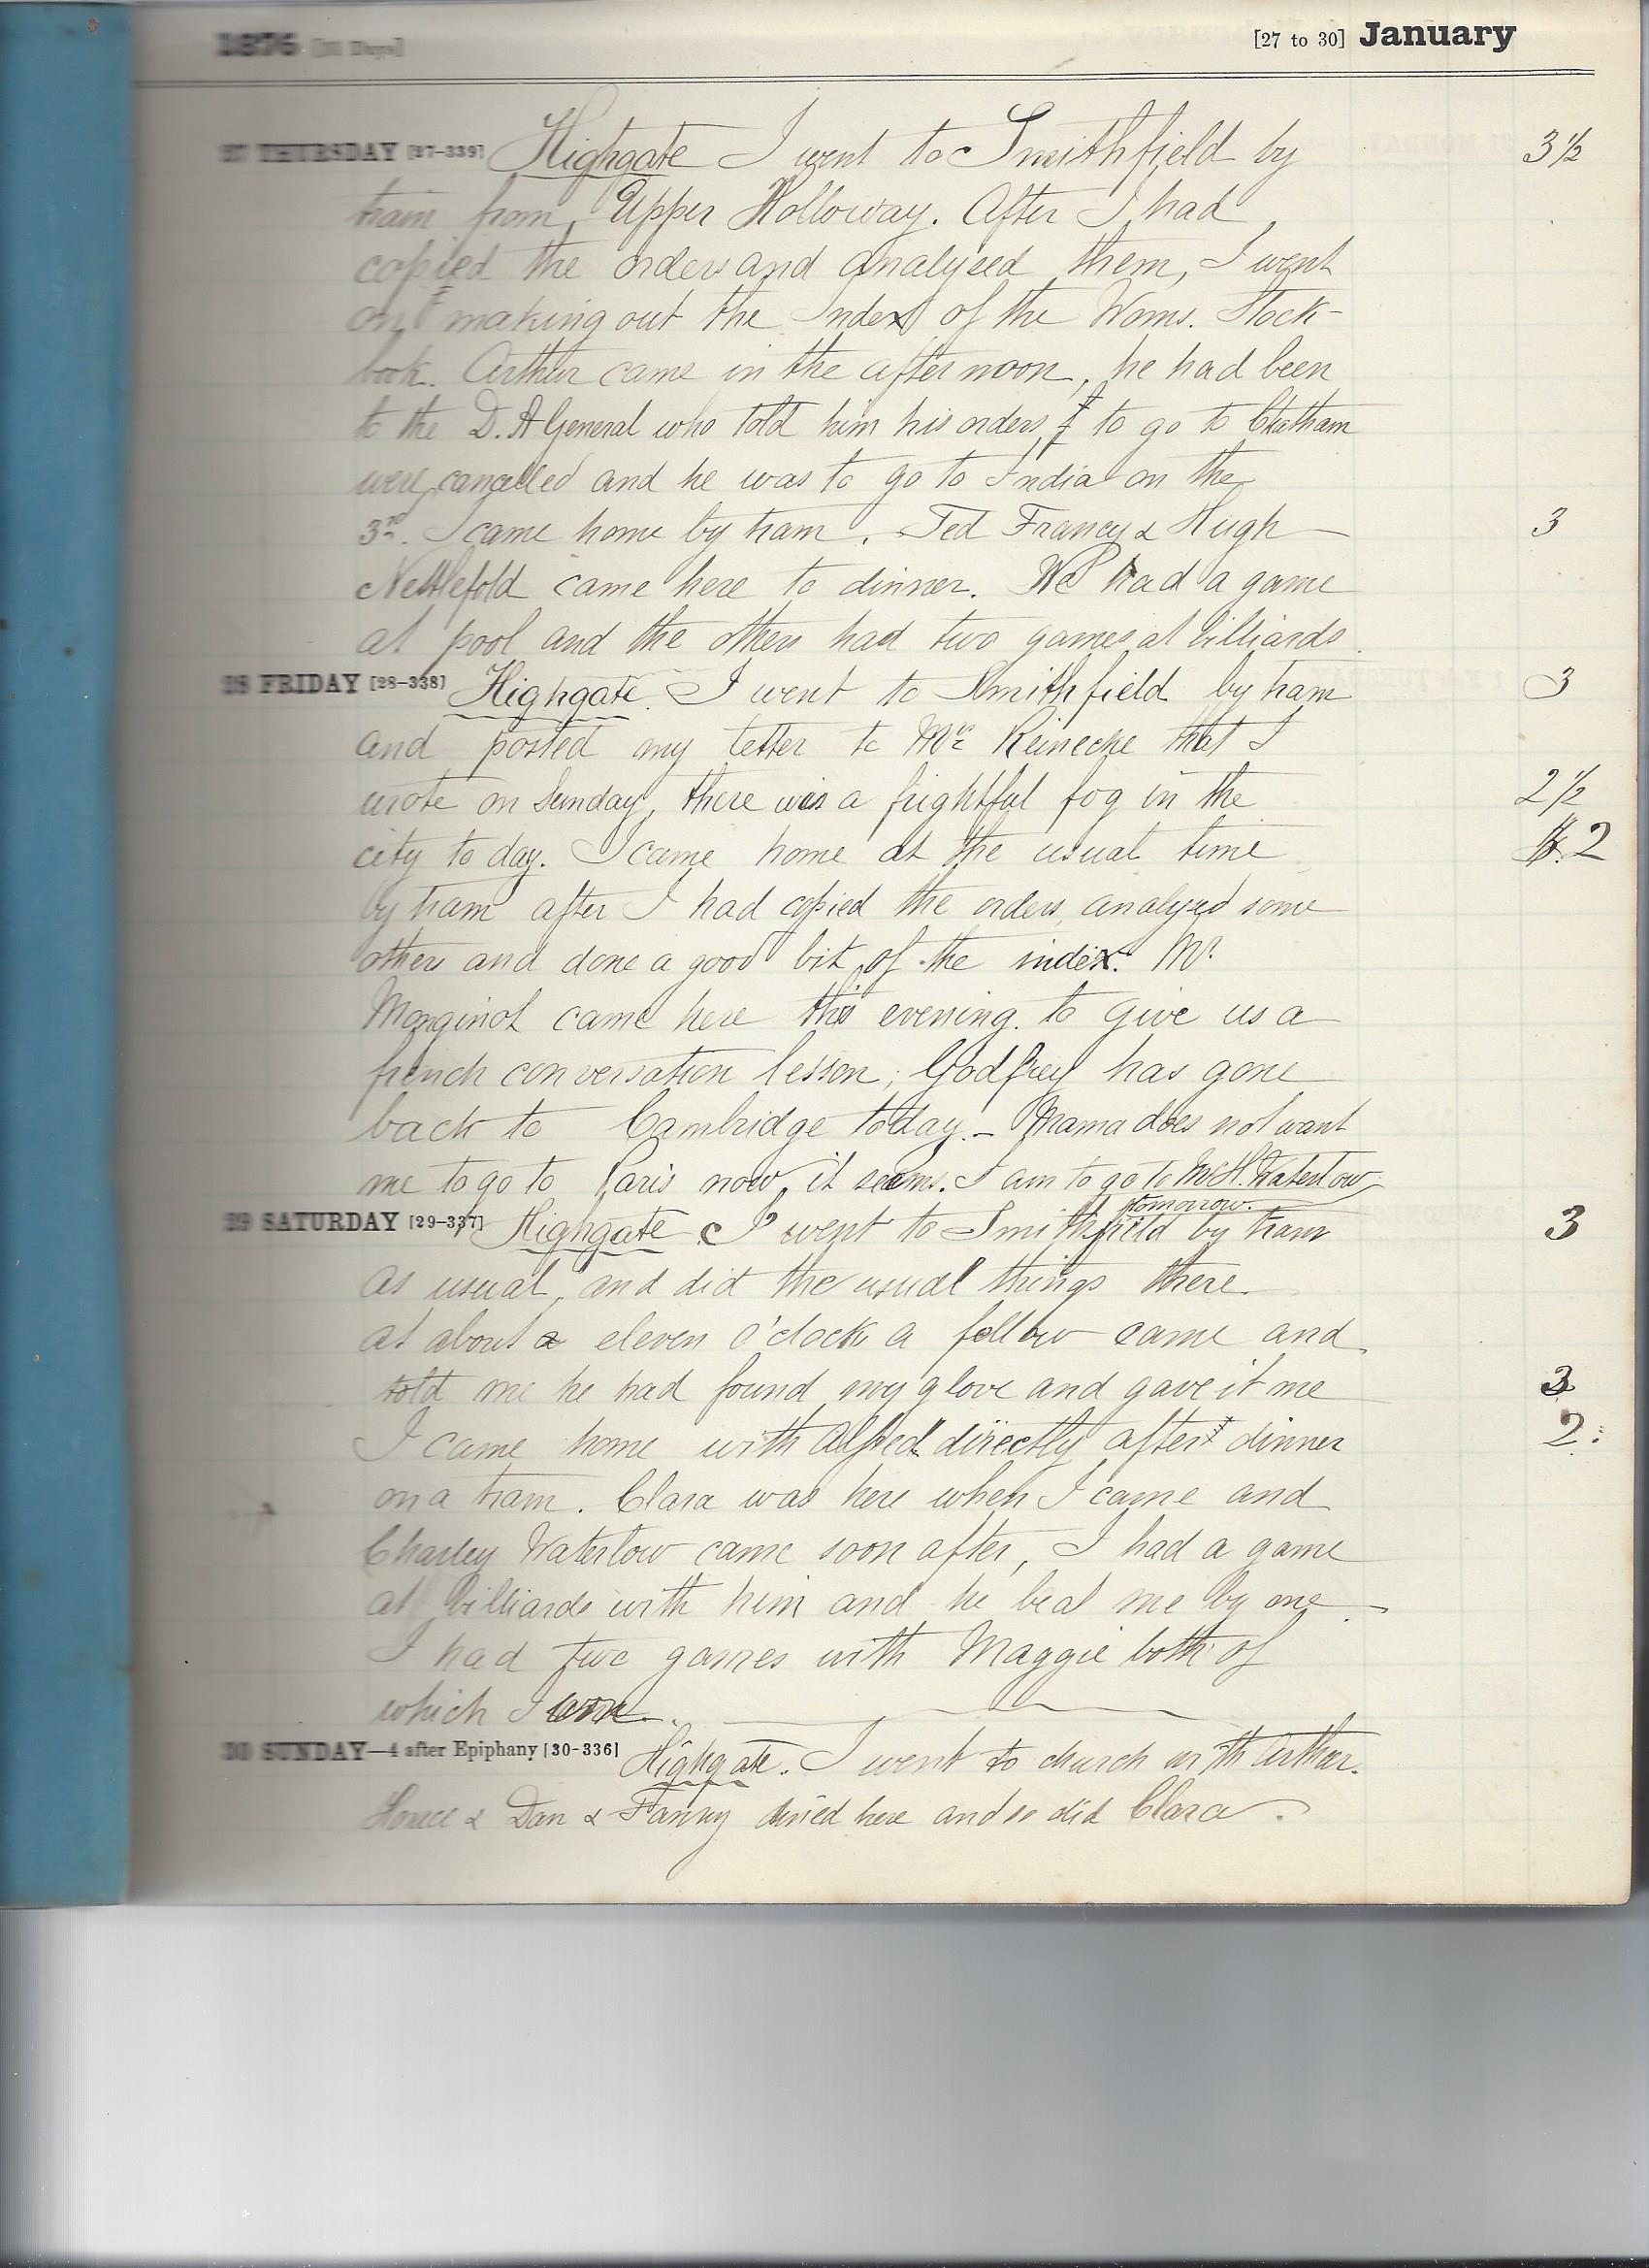 1876 [31 Days] [27 to 30] January
27 THURSDAY [27-339] Highgate I went to Smithfield by 3 1/2
train from Upper Holloway. After I had
copied the orders and analysed them, I went
on making out the Index of the Woms. Stock-
book. Arthur came in the afternoon, he had been
to the D. A General who told him his orders to go to Chatham
were cancelled and he was to go to India on the
3rd. I came home by tram. Ted Francy & Hugh 3
Nettlefold came here to dinner. We had a game
at pool and the others had two games at billiards.
28 FRIDAY [28-338] Highgate. I went to Smithfield by tram 3
and posted my letter to Mr Reinecke that I
wrote on Sunday, there was a frightful fog in the 2 1/2
city to day. I came home at the usual time 2
by tram after I had copied the orders, analysed some
others and done a good bit of the index. Mr.
Monginot came here this evening to give us a
french conversation lesson; Godfrey has gone
back to Cambridge today. - Mama does not want
me to go to Paris now, it seems. I am to go to Mr H. Waterlow
tomorrow.
29 SATURDAY [29-337] Highgate I went to Smithfield by tram 3
as usual, and did the usual things there.
at about eleven o'clock a fellow came and
told me he had found my glove and gave it me 3
I came home with Alfred directly after dinner 2
on a tram. Clara was here when I came and
Charley Waterlow came soon after, I had a game
at billiards with him and he beat me by one.
I had two games with Maggie both of
which I won.
30 SUNDAY—4 after Epiphany [30-336] Highgate. I went to church with Arthur.
Horace & Dan & Fanny dined here and so did Clara.